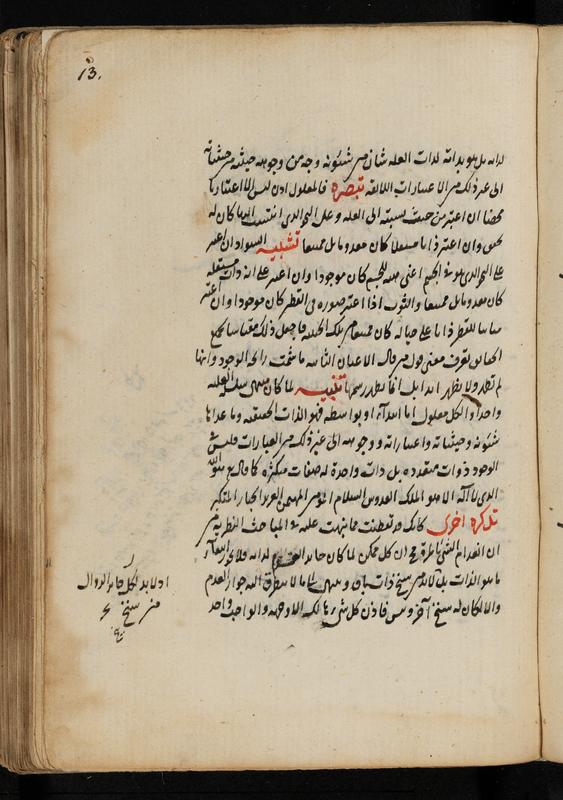 13.
لذاته بل هو بذاته لذات العلة شأن من شئونه ووجه من وجوهه حيثية من حيثياته
الى غير ذلك من الاعتبارات اللائقة تبصرة فالمعلول اذن ليس الا اعتباريا
محضا ان اعتبر من حيث نسبته الى العلة وعلى النحو الذي انتسب اليها كان له
تحقق وان اعتبر ذاتا مستقلا كان معدوما بل ممتنعا تشبيه السواد ان اعتبر
على النحو الذي هو في الجسم اعني هيئة للجسم كان موجودا وان اعتبر على انه ذات مستقلة
كان معدوما بل ممتنعا والثوب اذا اعتبر صورة في القطن كان موجودا وان اعتبر
مباينا للقطن ذاتا على حياله كان ممتنعا من تلك الحيثية فاجعل ذلك مقياسا لجميع
الحقائق تعرف معنى قول من قال الاعيان الثابتة ما شمت رائحة الوجود وانها
لم تظهر ولا تظهر ابدا بل انما يظهر رسمها تنبيه لما كان منتهى سلسلة العلة
واحدا والكل معلول اما ابتداء او بواسطة فهو الذات الحقيقة وما عداها
شئونه وحيثياته واعتباراته ووجوهه الى غير ذلك من العبارات فليس في
الوجود ذوات متعددة بل ذات واحدة له صفات متكثرة كما قال تع هو الله
الذي لا اله الا هو الملك القدوس السلام المؤمن المهيمن العزيز الجبار المتكبر
تذكرة اخرى كانك قد تفطنت مما نبهت عليه في المباحث النظرية من
ان انعدام الشيء بالمرة مح ان كل ممكن لما كان جائز العدم لذاته فلا يجوز ارتفاع
ما هو الذات بل لا بد من سنخ ذات باق وينتهي الى ما لا يتطرق اليه جواز العدم
والا لكان له سنخ آخر ويتسلسل فاذن كل شيء هالك الا وجهه والواجب واحد
اذ لا بد لكل جائز الزوال
من سنخ